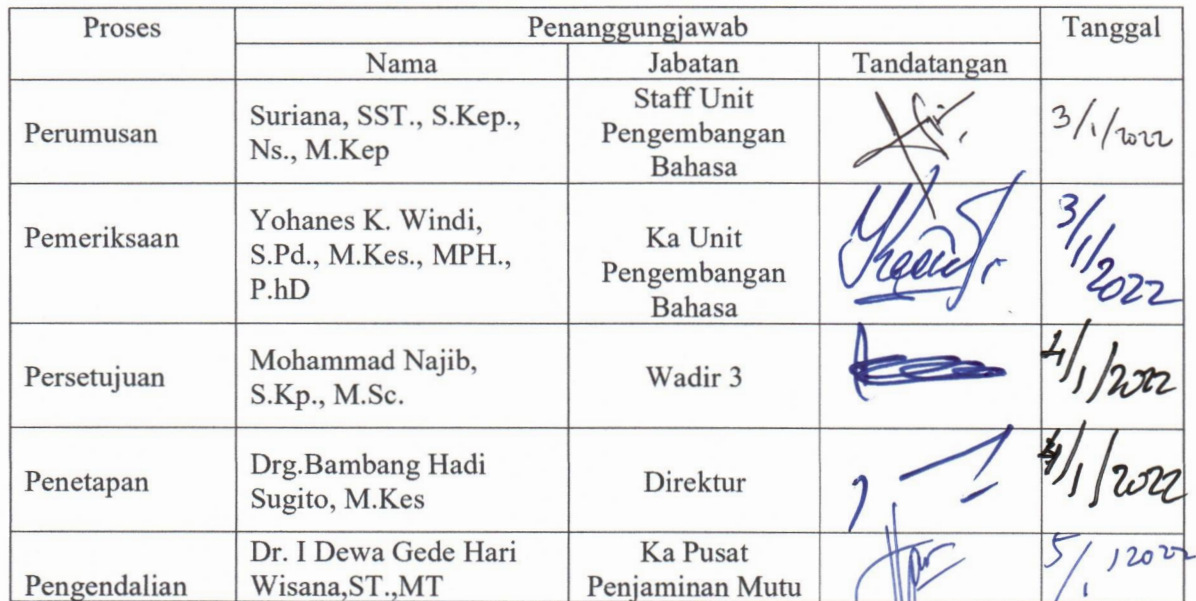 Proses
Penanggungjawab
Tanggal
Nama
Jabatan
Tandatangan
Perumusan
Suriana, SST., S.Kep.,
Ns., M.Kep
Staff Unit
Pengembangan
Bahasa
3/1/2022
Pemeriksaan
Yohanes K. Windi,
S.Pd., M.Kes., MPH.,
P.hD
Ka Unit
Pengembangan
Bahasa
3/1/2022
Persetujuan
Mohammad Najib,
S.Kp., M.Sc.
Wadir 3
4/1/2022
Penetapan
Drg.Bambang Hadi
Sugito, M.Kes
Direktur
4/1/2022
Pengendalian
Dr. I Dewa Gede Hari
Wisana,ST.,MT
Ka Pusat
Penjaminan Mutu
5/1 2022